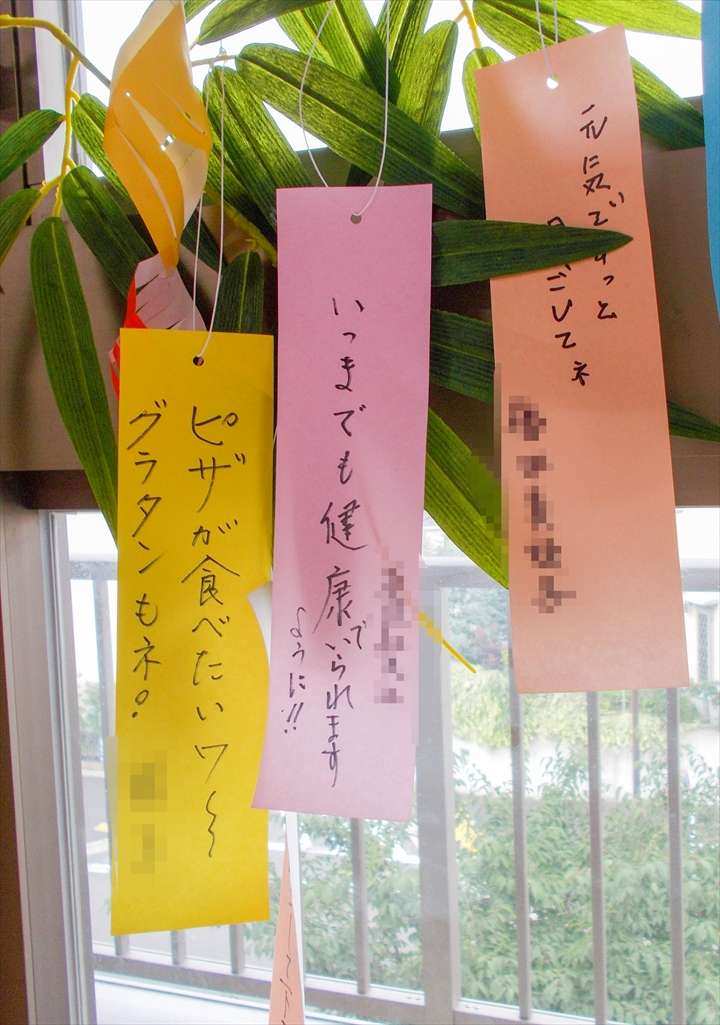 元気でずっと
過ごしてネ
いつまでも健康でいられます
ように!!
ピザが食べたいワ〜
グラタンもネ。